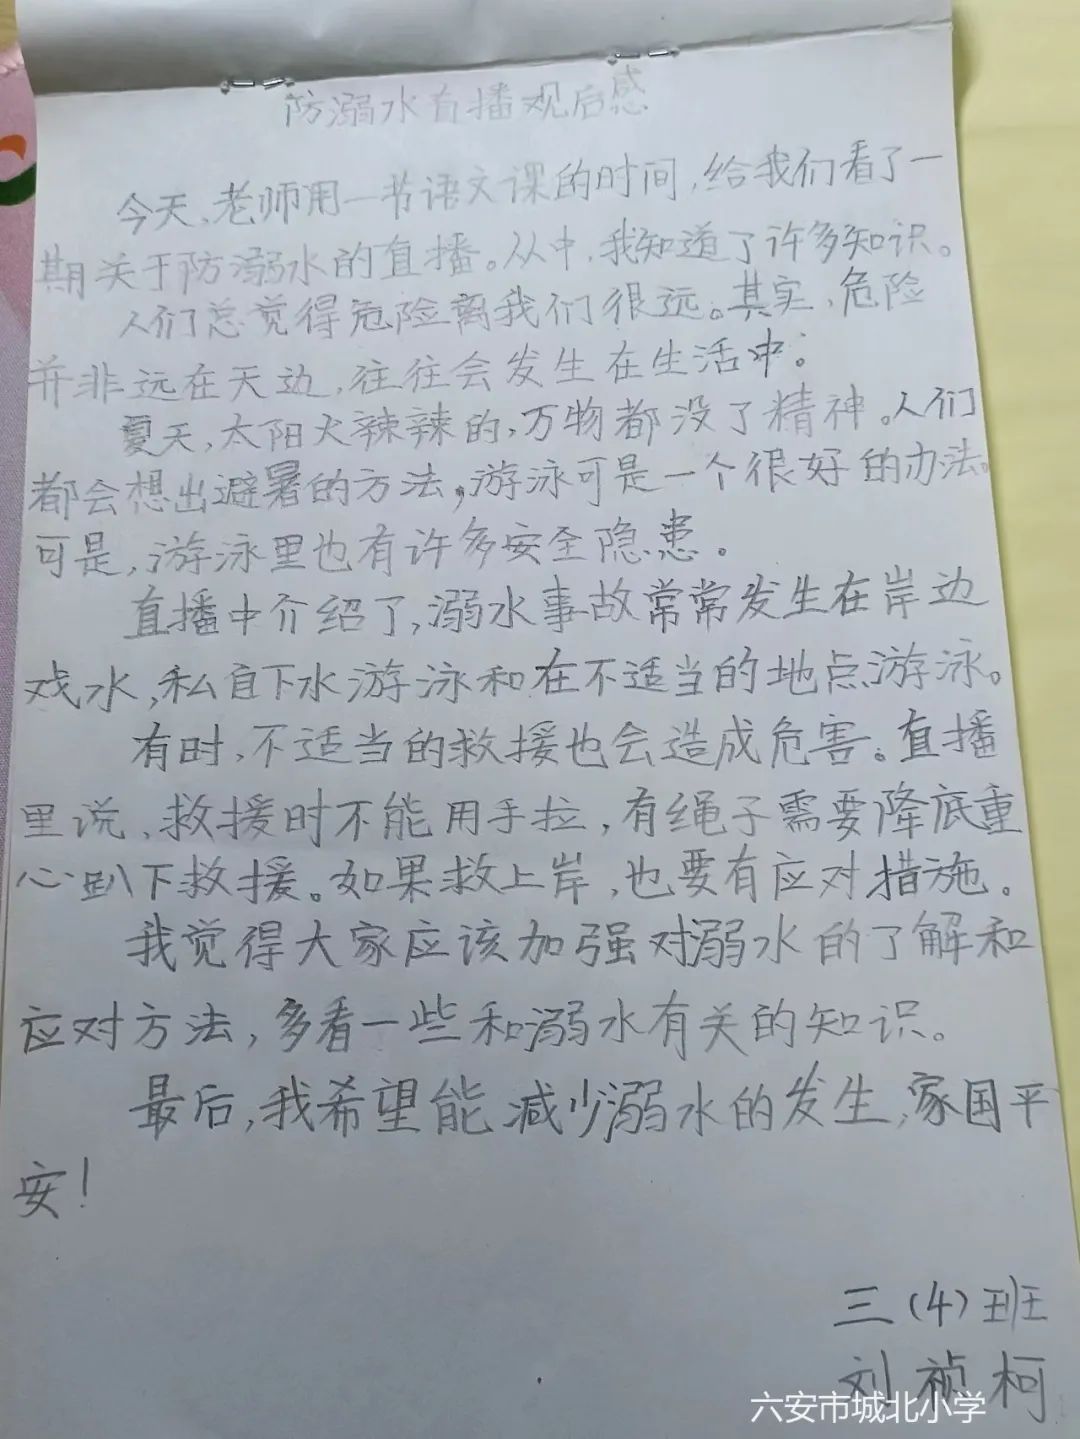 防溺水直播观后感
今天、老师用一书语文课的时间,给我们看了一
期关于防溺水的直播。从中,我知道了许多知识。
人们总觉得危险离我们很远。其实,危险
并非远在天边,往往会发生在生活中。
夏天,太阳火辣辣的,万物都没了精神。人们
都会想出避暑的方法,游泳可是一个很好的办法。
可是,游泳里也有许多安全隐患。
直播中介绍了,溺水事故常常发生在岸边
戏水,私自下水游泳和在不适当的地点游泳。
有时,不适当的救援也会造成危害。直播
里说,救援时不能用手拉,有绳子需要降底重
心趴下救援。如果救上岸,也要有应对措施。
我觉得大家应该加强对溺水的了解和
应对方法,多看一些和溺水有关的知识。
最后,我希望能减少溺水的发生,家国平
安!
三(4)班
刘祯柯
六安市城北小学